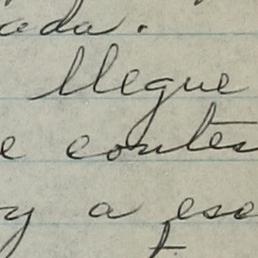 ada.
llegue
e contes
y a ese